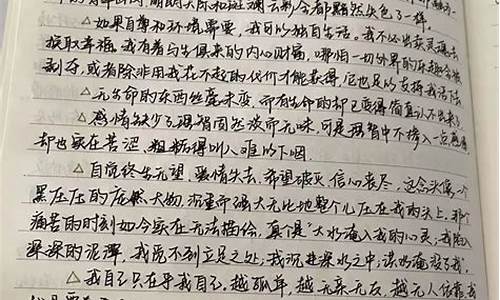 △如果自尊和环境需要,我可以独自生活。我不必出卖灵魂去
换取幸福。我有着与生俱来的内心财富,哪怕一切外界的乐趣全被
剥夺,或者除非用我付不起的代价才能获得,它也足以支持我活下去。
△无生命的东西丝毫未变,而有生命的却已变得简直认不出来了
△感情缺少了理智固然淡而无味,可是理智中不掺入一点感情
却也实在苦涩、粗糙得叫人难以下咽。
△自觉终生无望,爱情失去,希望破灭,信心丧尽,这念头像一个
黑压压的庞然大物,沉重而强大无比地整个儿压在我的头上,那个
痛苦的时刻如今实在无法描绘,真个是“大水淹入我的心灵,我陷入
深深的泥潭,我觉不到立足之处;我沉进深水之中;洪水淹没了我”。
△我自己只在乎我自己,越孤单,越无亲无友,越无人依靠